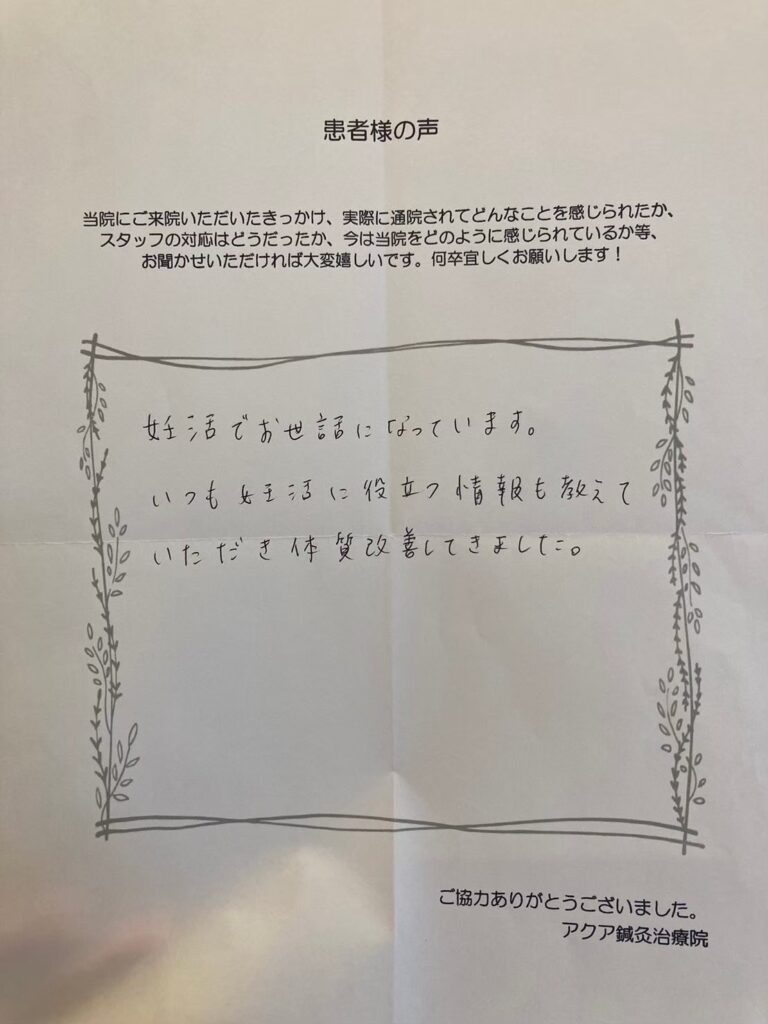 患者様の声
当院にご来院いただいたきっかけ、実際に通院されてどんなことを感じられたか、
スタッフの対応はどうだったか、今は当院をどのように感じられているか等、
お聞かせいただければ大変嬉しいです。何卒宜しくお願いします！
妊活でお世話になっています。
いつも妊活に役立つ情報も教えて
いただき体質改善してきました。
ご協力ありがとうございました。
アクア鍼灸治療院